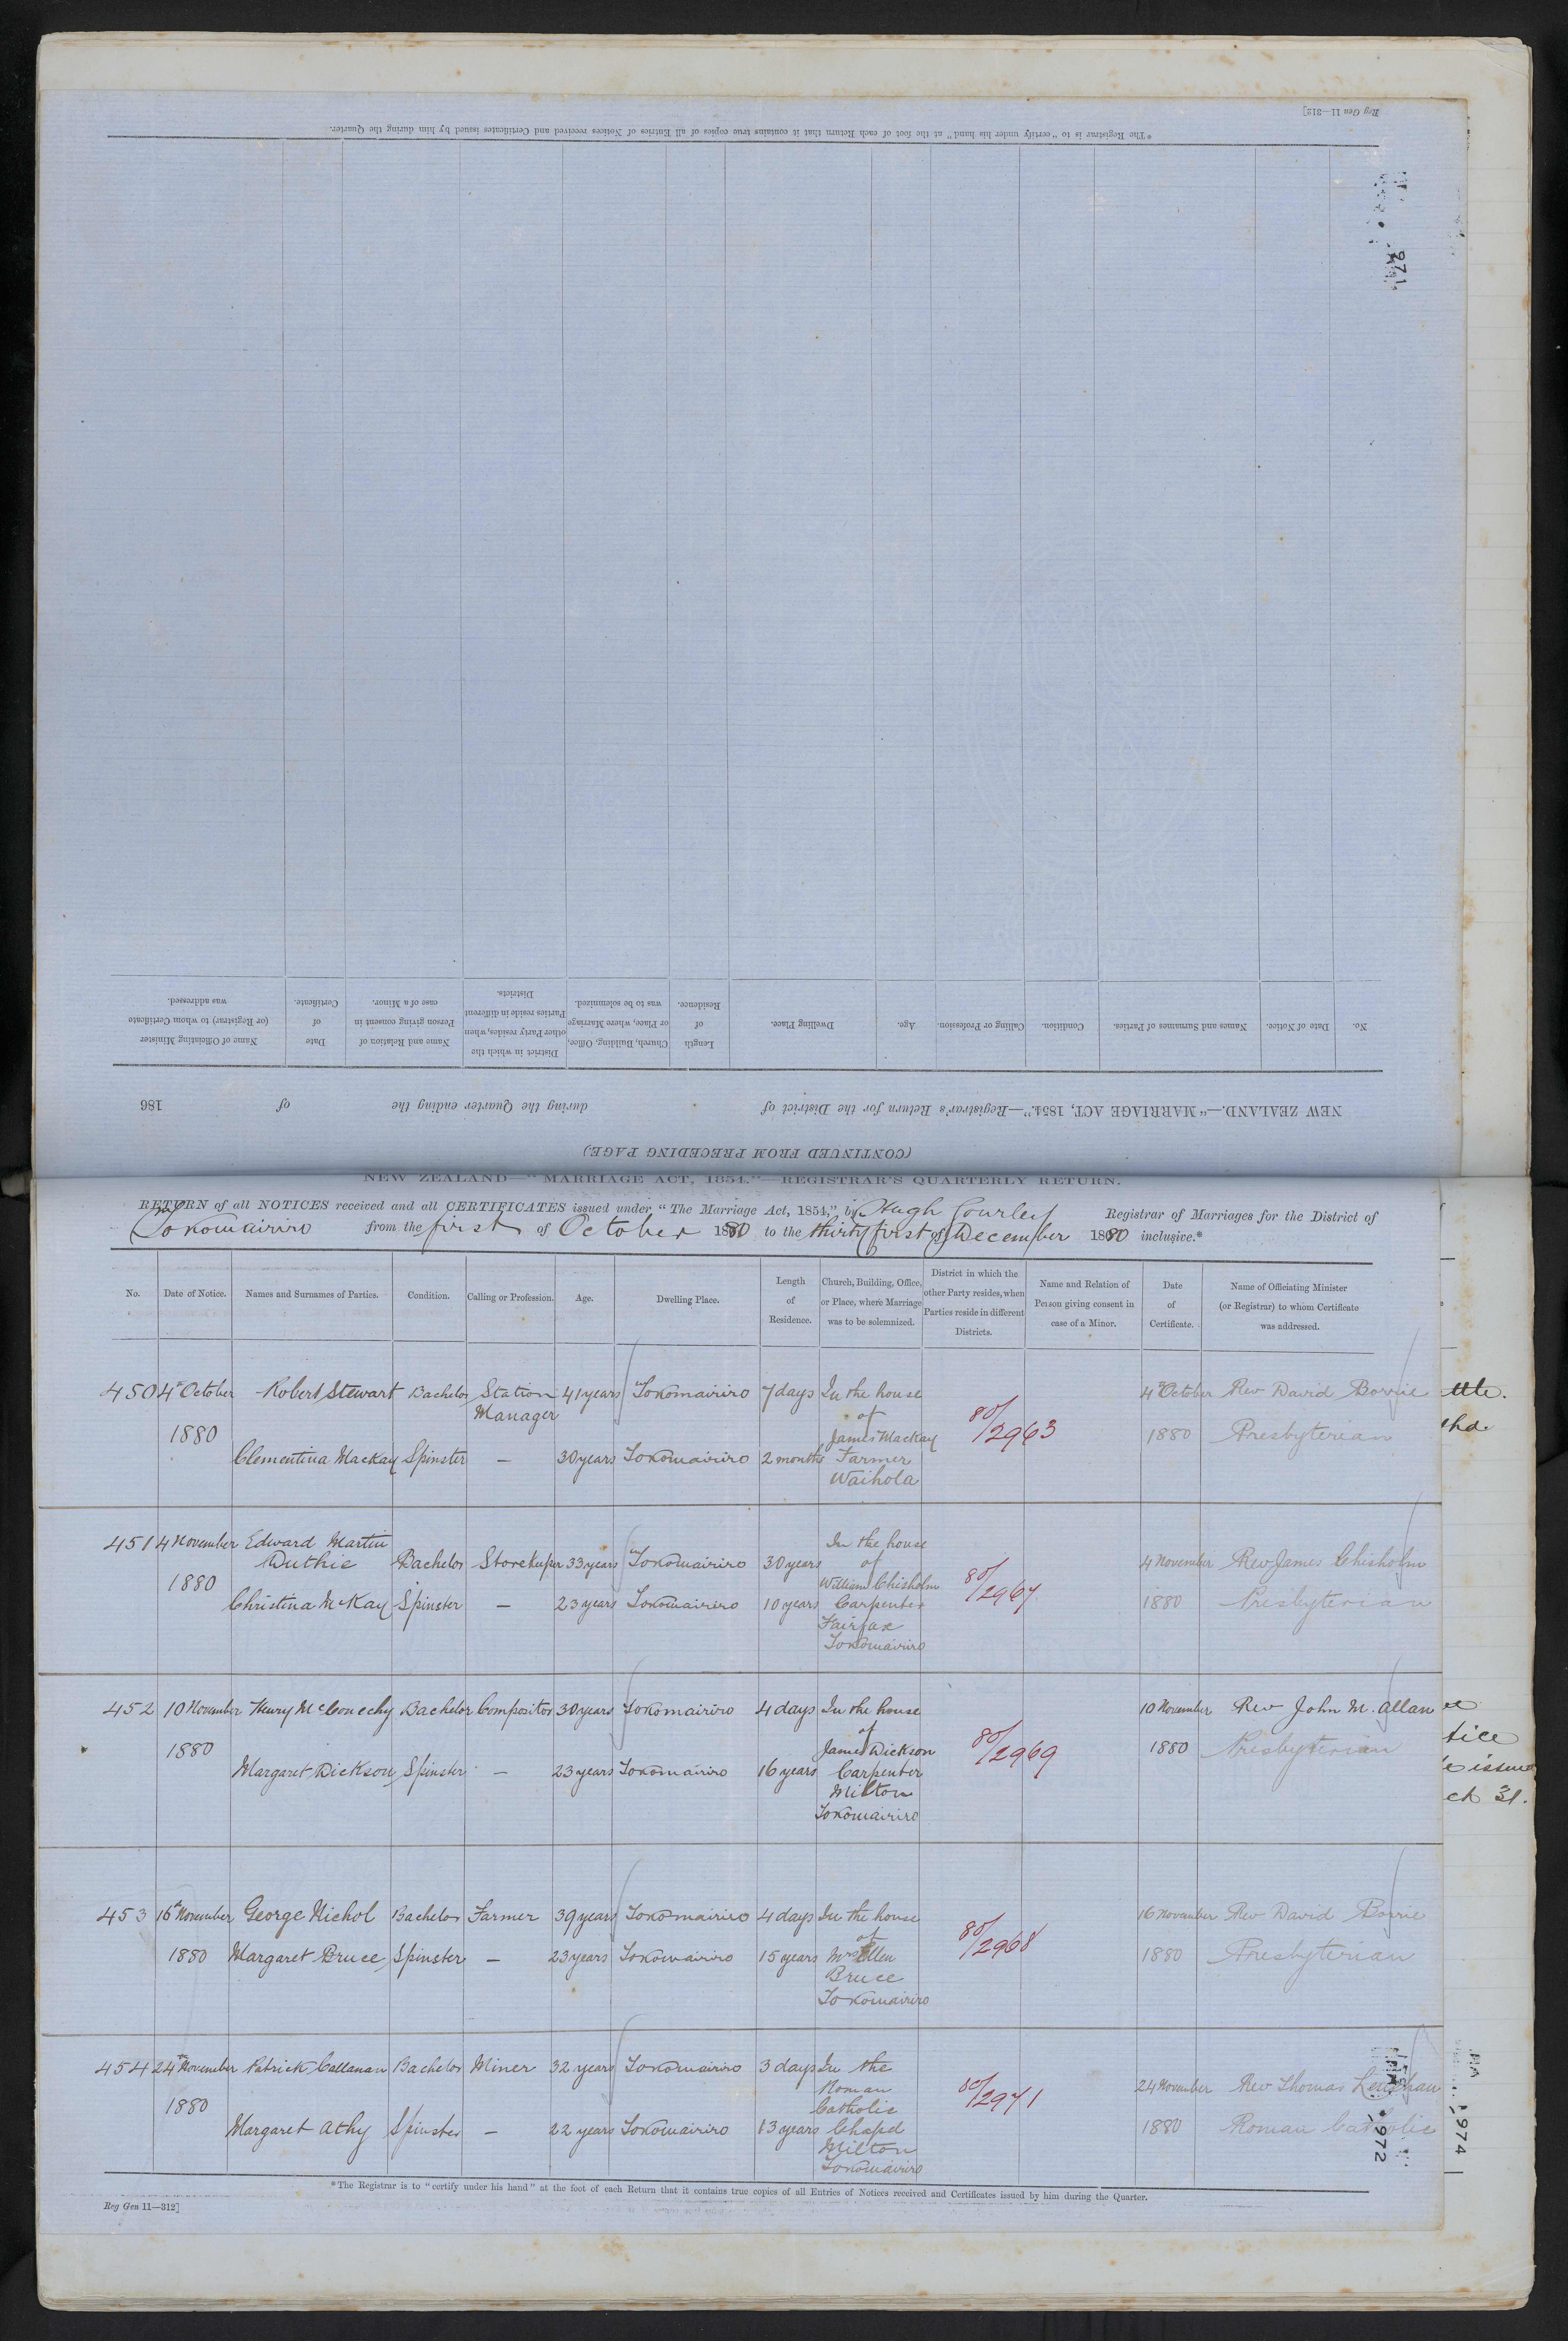 Reg Gen 11—312]
*The Registrar is to "certify under his hand" at the foot of each Return that it contains true copies of all Entries of Notices received and Certificates issued by him during the Quarter.
971
No.
Date of Notice.
Names and Surnames of Parties.
Condition.
Calling or Profession.
Age.
Dwelling Place.
Length of Residence.
Church, Building, Office, or Place, where Marriage was to be solemnized.
District in which the other Party resides, when Parties reside in different Districts.
Name and Relation of Person giving consent in case of a Minor.
Date of Certificate.
Name of Officiating Minister (or Registrar) to whom Certificate was addressed.
NEW ZEALAND.—"MARRIAGE ACT, 1854."—Registrar's Return for the District of during the Quarter ending the of 186
(CONTINUED FROM PRECEDING PAGE.)
NEW ZEALAND—"MARRIAGE ACT, 1854."—REGISTRAR'S QUARTERLY RETURN.
RETURN of all NOTICES received and all CERTIFICATES issued under "The Marriage Act, 1854," by Hugh Gourley Registrar of Marriages for the District of
Tokomairiro from the first of October 1880 to the thirty first of December 1880 inclusive.*
No.
Date of Notice.
Names and Surnames of Parties.
Condition.
Calling or Profession.
Age.
Dwelling Place.
Length of Residence.
Church, Building, Office, or Place, where Marriage was to be solemnized.
District in which the other Party resides, when Parties reside in different Districts.
Name and Relation of Person giving consent in case of a Minor.
Date of Certificate.
Name of Officiating Minister (or Registrar) to whom Certificate was addressed.
450 4th October Robert Stewart Bachelor Station Manager 41 years Tokomairiro 7 days In the house of James Mackay Farmer Waihola 80/2963 4th October Rev David Borrie
1880 Clementina Mackay Spinster — 30 years Tokomairiro 2 months 1880 Presbyterian
451 4 November Edward Martin Duthie Bachelor Storekeeper 33 years Tokomairiro 30 years In the house of William Chisholm Carpenter Fairfax Tokomairiro 80/2967 4 November Rev James Chisholm
1880 Christina McKay Spinster — 23 years Tokomairiro 10 years 1880 Presbyterian
452 10 November Henry McConechy Bachelor Compositor 30 years Tokomairiro 4 days In the house of James Dickson Carpenter Milton Tokomairiro 80/2969 10 November Rev John M. Allan
1880 Margaret Dickson Spinster — 23 years Tokomairiro 16 years 1880 Presbyterian
453 16th November George Nichol Bachelor Farmer 39 years Tokomairiro 4 days In the house of Mrs Ellen Bruce Tokomairiro 80/2968 16 November Rev David Borrie
1880 Margaret Bruce Spinster — 23 years Tokomairiro 15 years 1880 Presbyterian
454 24th November Patrick Callanan Bachelor Miner 32 years Tokomairiro 3 days In the Roman Catholic Chapel Milton Tokomairiro 80/2971 24 November Rev Thomas Lenehan
1880 Margaret Athy Spinster — 22 years Tokomairiro 13 years 1880 Roman Catholic
972
974
*The Registrar is to "certify under his hand" at the foot of each Return that it contains true copies of all Entries of Notices received and Certificates issued by him during the Quarter.
Reg Gen 11—312]